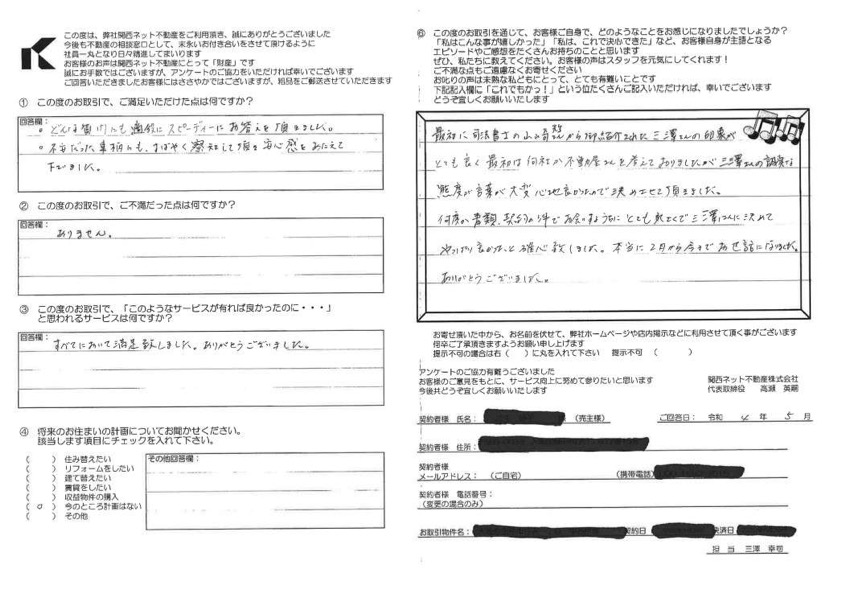 この度は、弊社関西ネット不動産をご利用頂き、誠にありがとうございました
今後も不動産の相談窓口として、末永いお付き合いをさせて頂けるように
社員一丸となり日々精進してまいります
お客様のお声は関西ネット不動産にとって「財産」です
誠にお手数ではございますが、アンケートのご協力をいただければ幸いでございます
ご回答いただきましたお客様にはささやかではございますが、粗品をご郵送させていただきます
① この度のお取引で、ご満足いただけた点は何ですか？
回答欄：
。どんな質問にも適格にスピーディーにお答えを頂きました。
。不安だった事柄にも、すばやく察知して頂き安心感をあたえて
下さいました。
② この度のお取引で、ご不満だった点は何ですか？
回答欄：
ありません。
③ この度のお取引で、「このようなサービスが有れば良かったのに・・・」
と思われるサービスは何ですか？
回答欄：
すべてにおいて満足致しました。ありがとうございました。
④ 将来のお住まいの計画についてお聞かせください。
該当します項目にチェックを入れて下さい。
（　　）住み替えたい
（　　）リフォームをしたい
（　　）建て替えたい
（　　）賃貸をしたい
（　　）収益物件の購入
（　o　）今のところ計画はない
（　　）その他
その他回答欄：
⑥ この度のお取引を通じて、お客様ご自身で、どのようなことをお感じになりましたでしょうか？
「私はこんな事が嬉しかった」「私は、これで決心できた」など、お客様自身が主語となる
エピソードやご感想をたくさんお持ちのことと思います
ぜひ、私たちに教えてください。お客様の声はスタッフを元気にしてくれます！
ご不満な点もご遠慮なくお寄せください
お叱りの声は未熟な私どもにとって、とても有難いことです
下記記入欄に「これでもかっ！」という位たくさんご記入いただければ、幸いでございます
どうぞ宜しくお願いいたします
最初に司法書士の小山 さんから御紹介された三澤さんの印象が
とても良く最初は何社か不動産さんを考えておりましたが三澤さんの誠実な
態度が言葉が大変心地良かったので決めさせて頂きました。
何度か書類、契約の件でお会いするうちにとても気さくで三澤さんに決めて
やっぱり良かったと確心致しました。本当に2月から今までお世話になりました。
ありがとうございました。
お寄せ頂いた中から、お名前を伏せて、弊社ホームページや店内掲示などに利用させて頂く事がございます
何卒ご了承頂きますようお願い申し上げます
提示不可の場合は右（　）に丸を入れて下さい　提示不可　（　　　）
アンケートのご協力有難うございました
お客様のご意見をもとに、サービス向上に努めて参りたいと思います
今後共どうぞ宜しくお願いいたします
関西ネット不動産株式会社
代表取締役　高瀬 英嗣
契約者様 氏名：　（売主様）　ご回答日：　令和　4　年　5　月
契約者様 住所：
契約者様
メールアドレス：　（ご自宅）　（携帯電話）
契約者様 電話番号：
（変更の場合のみ）
お取引物件名：　契約日　決済日
担 当　三澤 幸